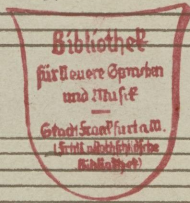 Bibliothek
für Neuere Sprachen
und Musik
Stadt Frankfurt a. M.
(Freihl. v. Rothschild'sche
Bibliothek)